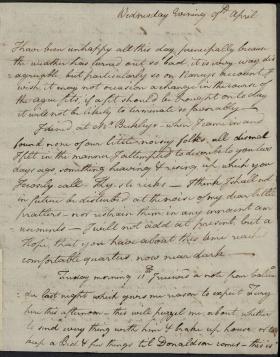 Wednesday Evening 9th April
I have been unhappy all this day, principally because
the weather has turned out so bad, it is very way dis
agreeable but particularly so on Nancy's account, I
wish it may not occasion a change in the course of
the ague fits, if a fit should be brought on to day
it will not be likely to terminate so favorably —
I dined at Mr Bukelys — when I came in and
found none of our little noisy folks, all dismal
I felt in the manner I attempted to describe to you two
days ago, something heaving & rising up, which you
I think I shall not
in future be disturbed at the noise of my dear little
prattlers — nor restrain them in any innocent am
usements — I will not add at present, but a
Hope that you have about this time reach
comfortable quarters, now near dark —
Thursday morning 10th I received a note from
last night which gives me reason to expect
him this afternoon — this will put me about whether
to send every thing with him & brake up house or to
keep a Bed & few things til Donaldson comes — this is